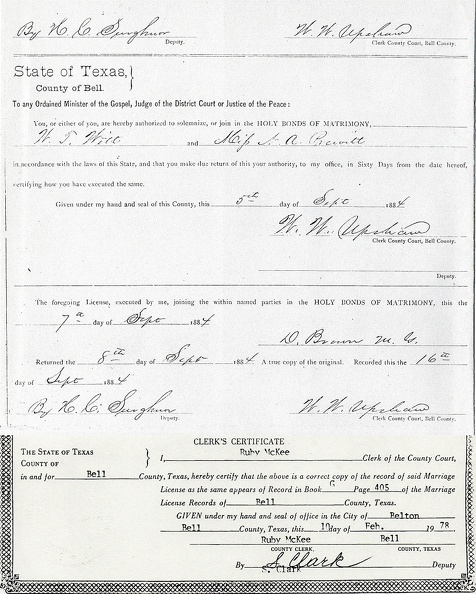 By H. C. Surghnor W. W. Upshaw
Deputy. Clerk County Court, Bell County.
State of Texas,
County of Bell.
To any Ordained Minister of the Gospel, Judge of the District Court or Justice of the Peace:
You, or either of you, are hereby authorized to solemnize, or join in the HOLY BONDS OF MATRIMONY,
W. T. Witt and Miss N. A. Prewitt
in accordance with the laws of this State, and that you make due return of this your authority, to my office, in Sixty Days from the date hereof,
certifying how you have executed the same.
Given under my hand and seal of this County, this 5th day of Sept 1884
W. W. Upshaw
Clerk County Court, Bell County.
Deputy.
The foregoing License, executed by me, joining the within named parties in the HOLY BONDS OF MATRIMONY, this the
7th day of Sept 1884.
D. Brown M. G.
Returned the 8th day of Sept 1884. A true copy of the original. Recorded this the 16th
day of Sept 1884
By H. C. Surghnor W. W. Upshaw
Deputy. Clerk County Court, Bell County.
CLERK'S CERTIFICATE
THE STATE OF TEXAS } I, Ruby McKee Clerk of the County Court,
COUNTY OF
in and for Bell County, Texas, hereby certify that the above is a correct copy of the record of said Marriage
License as the same appears of Record in Book G Page 405 of the Marriage
License Records of Bell County, Texas.
GIVEN under my hand and seal of office in the City of Belton
Bell County, Texas, this 10 day of Feb. 1978
Ruby McKee Bell
COUNTY CLERK, COUNTY, TEXAS
By S. Clark Deputy
S. Clark